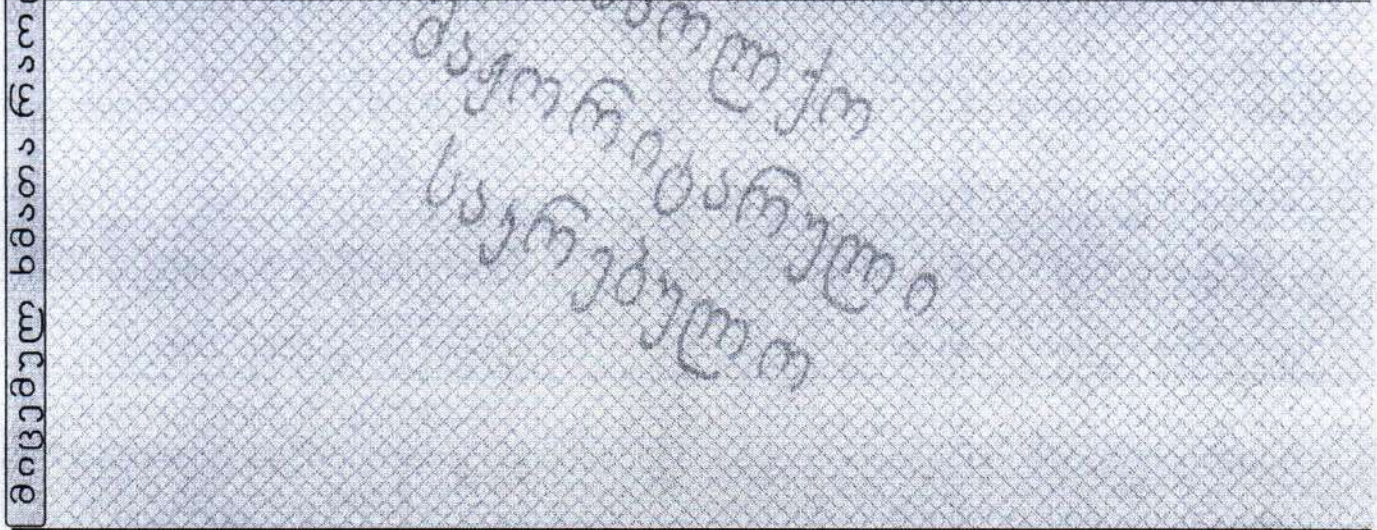 მიცემულ ხმათა
საოლქო
მაჟორიტარული
საკრებულო